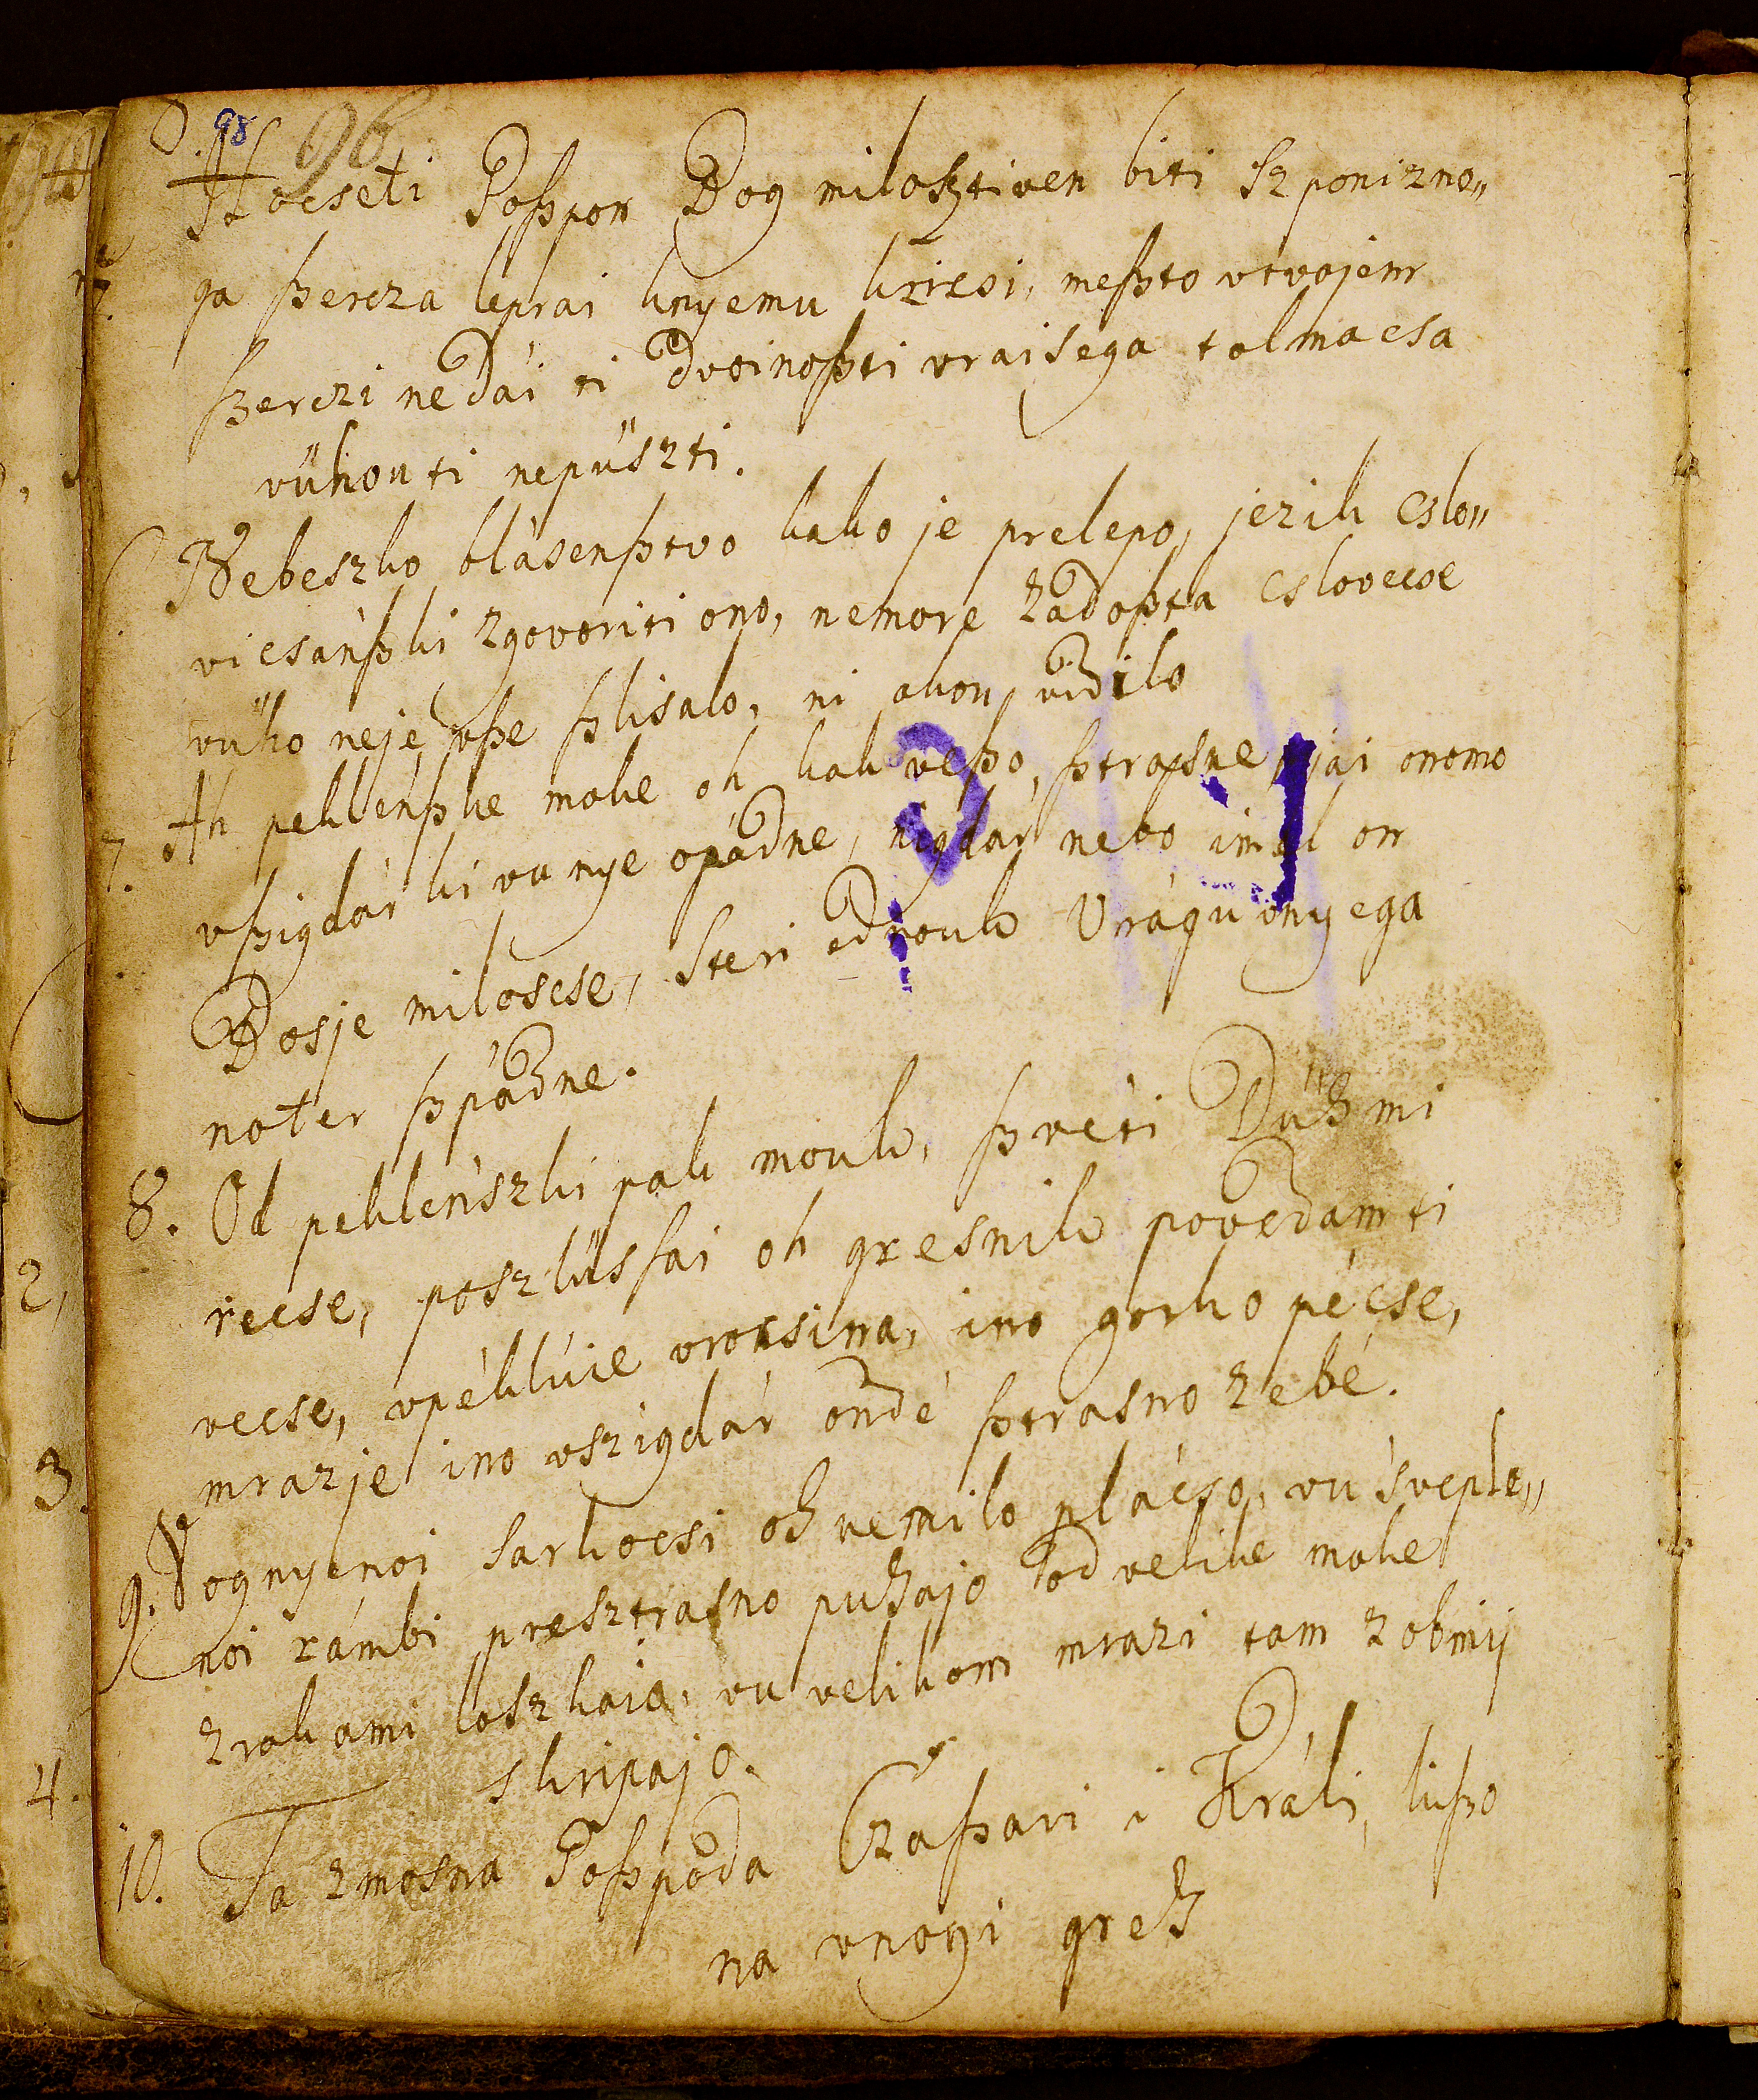 98 96
5. Hocseti Goſzpon Bog miloſztiven biti ſz ponizno„
ga ſzercza leprai knyemu kricsi, meſzto vtvojem
ſzerczi nedái ti dvoinoſzti vraisega tolmacsa
vühou ti nepüszti.
6. Nebeszko blásenſztvo kako je prelepo, jezik cslo„
vicsánſzki zgovoriti ono, nemore zadoſzta cslovecse
vüho neje vſze ſzlisalo, ni okou vidilo
7. Ah peklenſzke moke oh kak veſzo, ſztrasne jai onomo
vſzigdár ki vu nye opádne, nigdár nebo imel on
Bosje milosese, steri ednouk Vrágu vnyega
noter ſzpádne.
8. Od peklénszki pak mouk, ſzvéti Düh mi
recse, poszlüsſai oh gresnik povedamti
vecse, vpéklúie vrocsina, ino gorko pécse,
mraz je ino vszigdár ondé ſztrasno zebé.
9. Vognyenoi sarkocsi oh nemilo plácso, vu sveple„
noi rámbi presztrasno puhajo od velike moke
z rokami loszkaio, vu velikom mrazi tam zobmij
skripajo.
10. Ta zmosna Goſzpoda Czaſzari i Králi, liſzo
na vnogi greh
2,
3.
4.